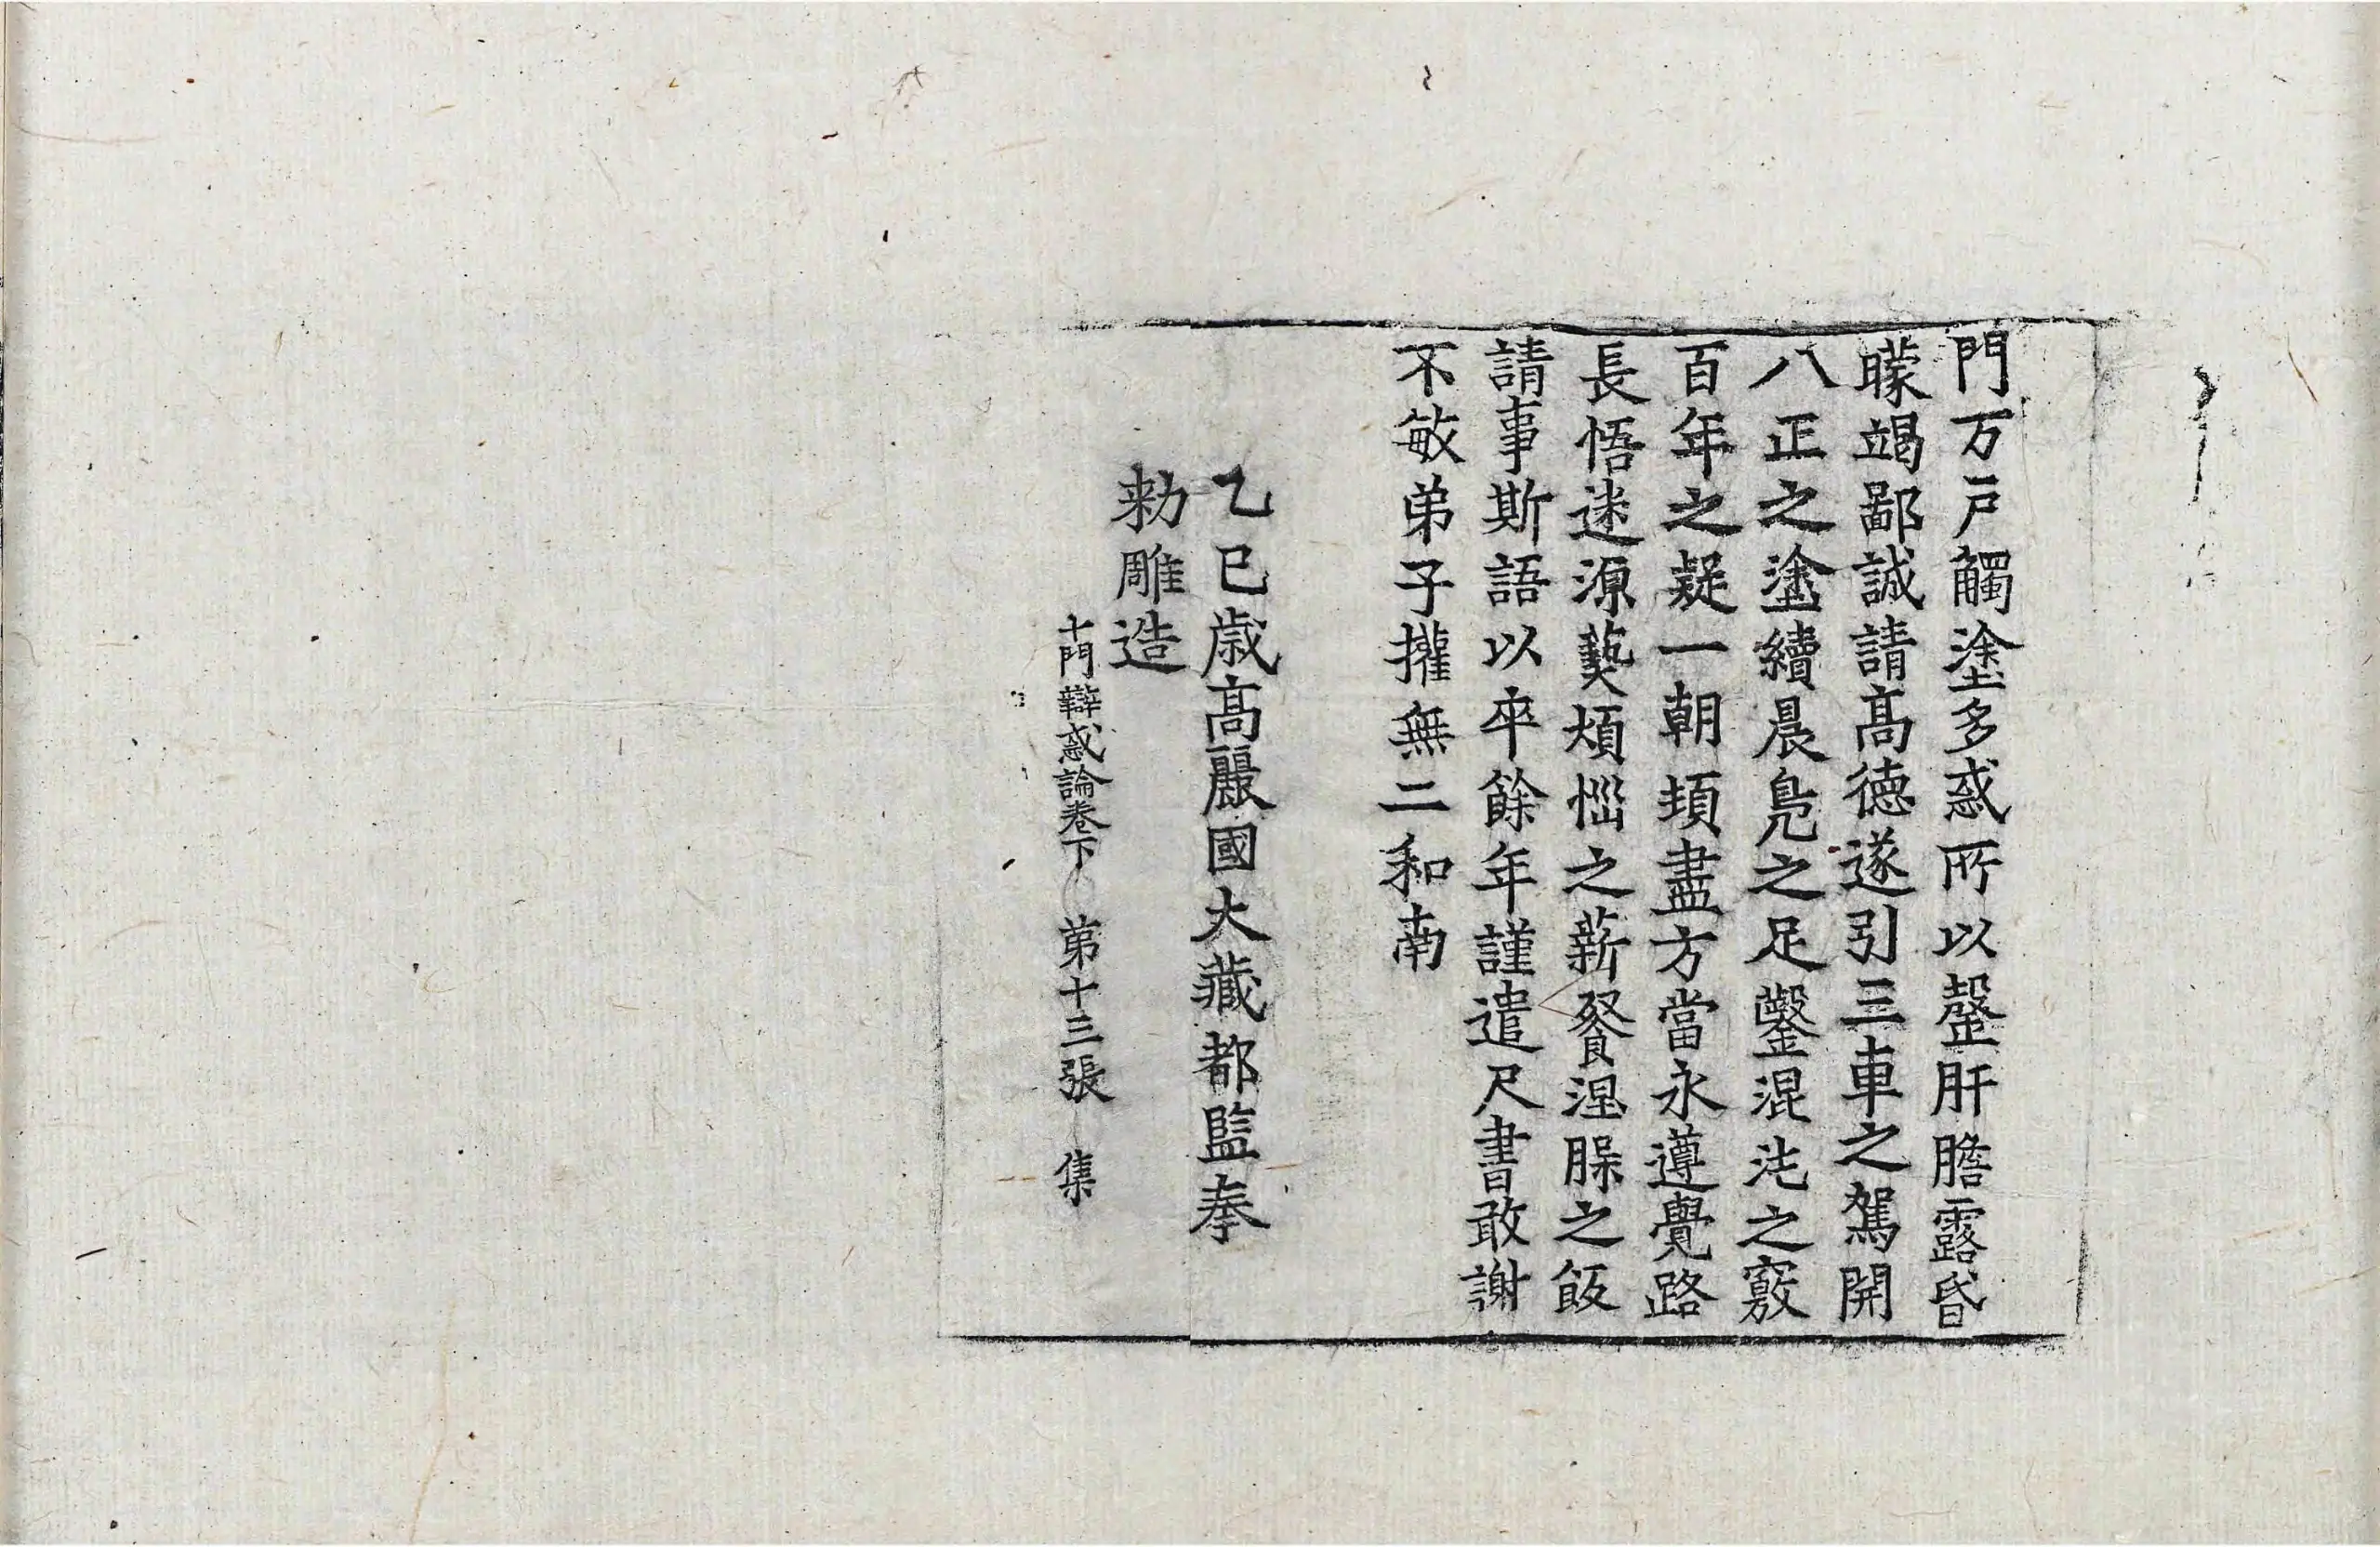 門万戸觸塗多惑所以罄肝膽露昏
矇竭鄙誠請髙德遂引三車之駕開
八正之塗續晨鳬之足鑿混沌之竅
百年之疑一朝頓盡方當永遵覺路
長悟迷源爇煩惱之薪飡涅槃之飯
請事斯語以卒餘年謹遣尺書敢謝
不敏弟子權無二和南
乙巳歳高麗國大藏都監奉
勑雕造
十門辯惑論卷下　第十三張　集